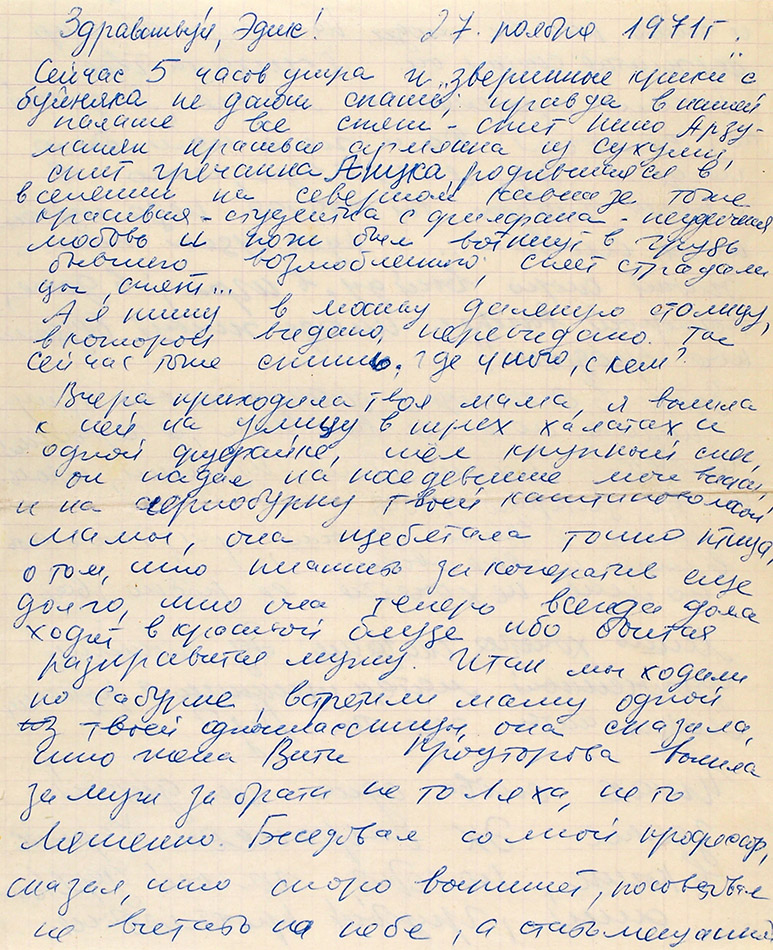 Здравствуй, Эдик! 27. ноября 1971г.
Сейчас 5 часов утра и „звериные крики“ с
буйняка не дают спать, правда в нашей
палате все спят - спит Арзу-
манян красивая армянка из Сухуми,
спит гречанка Анука, родившаяся в
вселении на северном кавказе тоже
красивая - студентка с филфрана - неудачная
любовь и нож был воткнут в грудь
бывшего возлюбленного, спят страдали
цы, спят...
А я пишу в москву далекую столицу,
в которой видано, перевидано. Там
сейчас тоже спишь. Где и что, с кем?
Вчера приходила твоя мама, я вышла
к ней на улицу в трех халатах и
одной фуфайке, шел крупный снег,
он падал на поседевшие мои власы,
и на чернобурку твоей каштановолосой
мамы, она щебетала точно птица,
о том, что платить за кооператив еще
долго, что она теперь всегда дома
ходит в красной блузе ибо она
разнравится мужу. Итак мы ходили
по Сабурке, встретили маму одной
из твоей одноклассницы, она сказала,
что жена Вити Проуторова вышла
замуж за брата не то Ляха, не то
Ляшенко. Беседовал со мной профессор,
сказал, что скоро выпишет, посоветовал
не витать на небе, а стать мещанкой